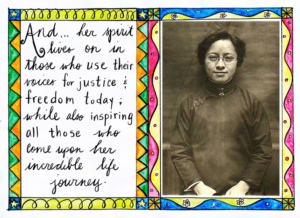 And... her spirit
lives on in
those who use their
voices for justice &
freedom today;
while also inspiring
all those who
come upon her
incredible life
journey.